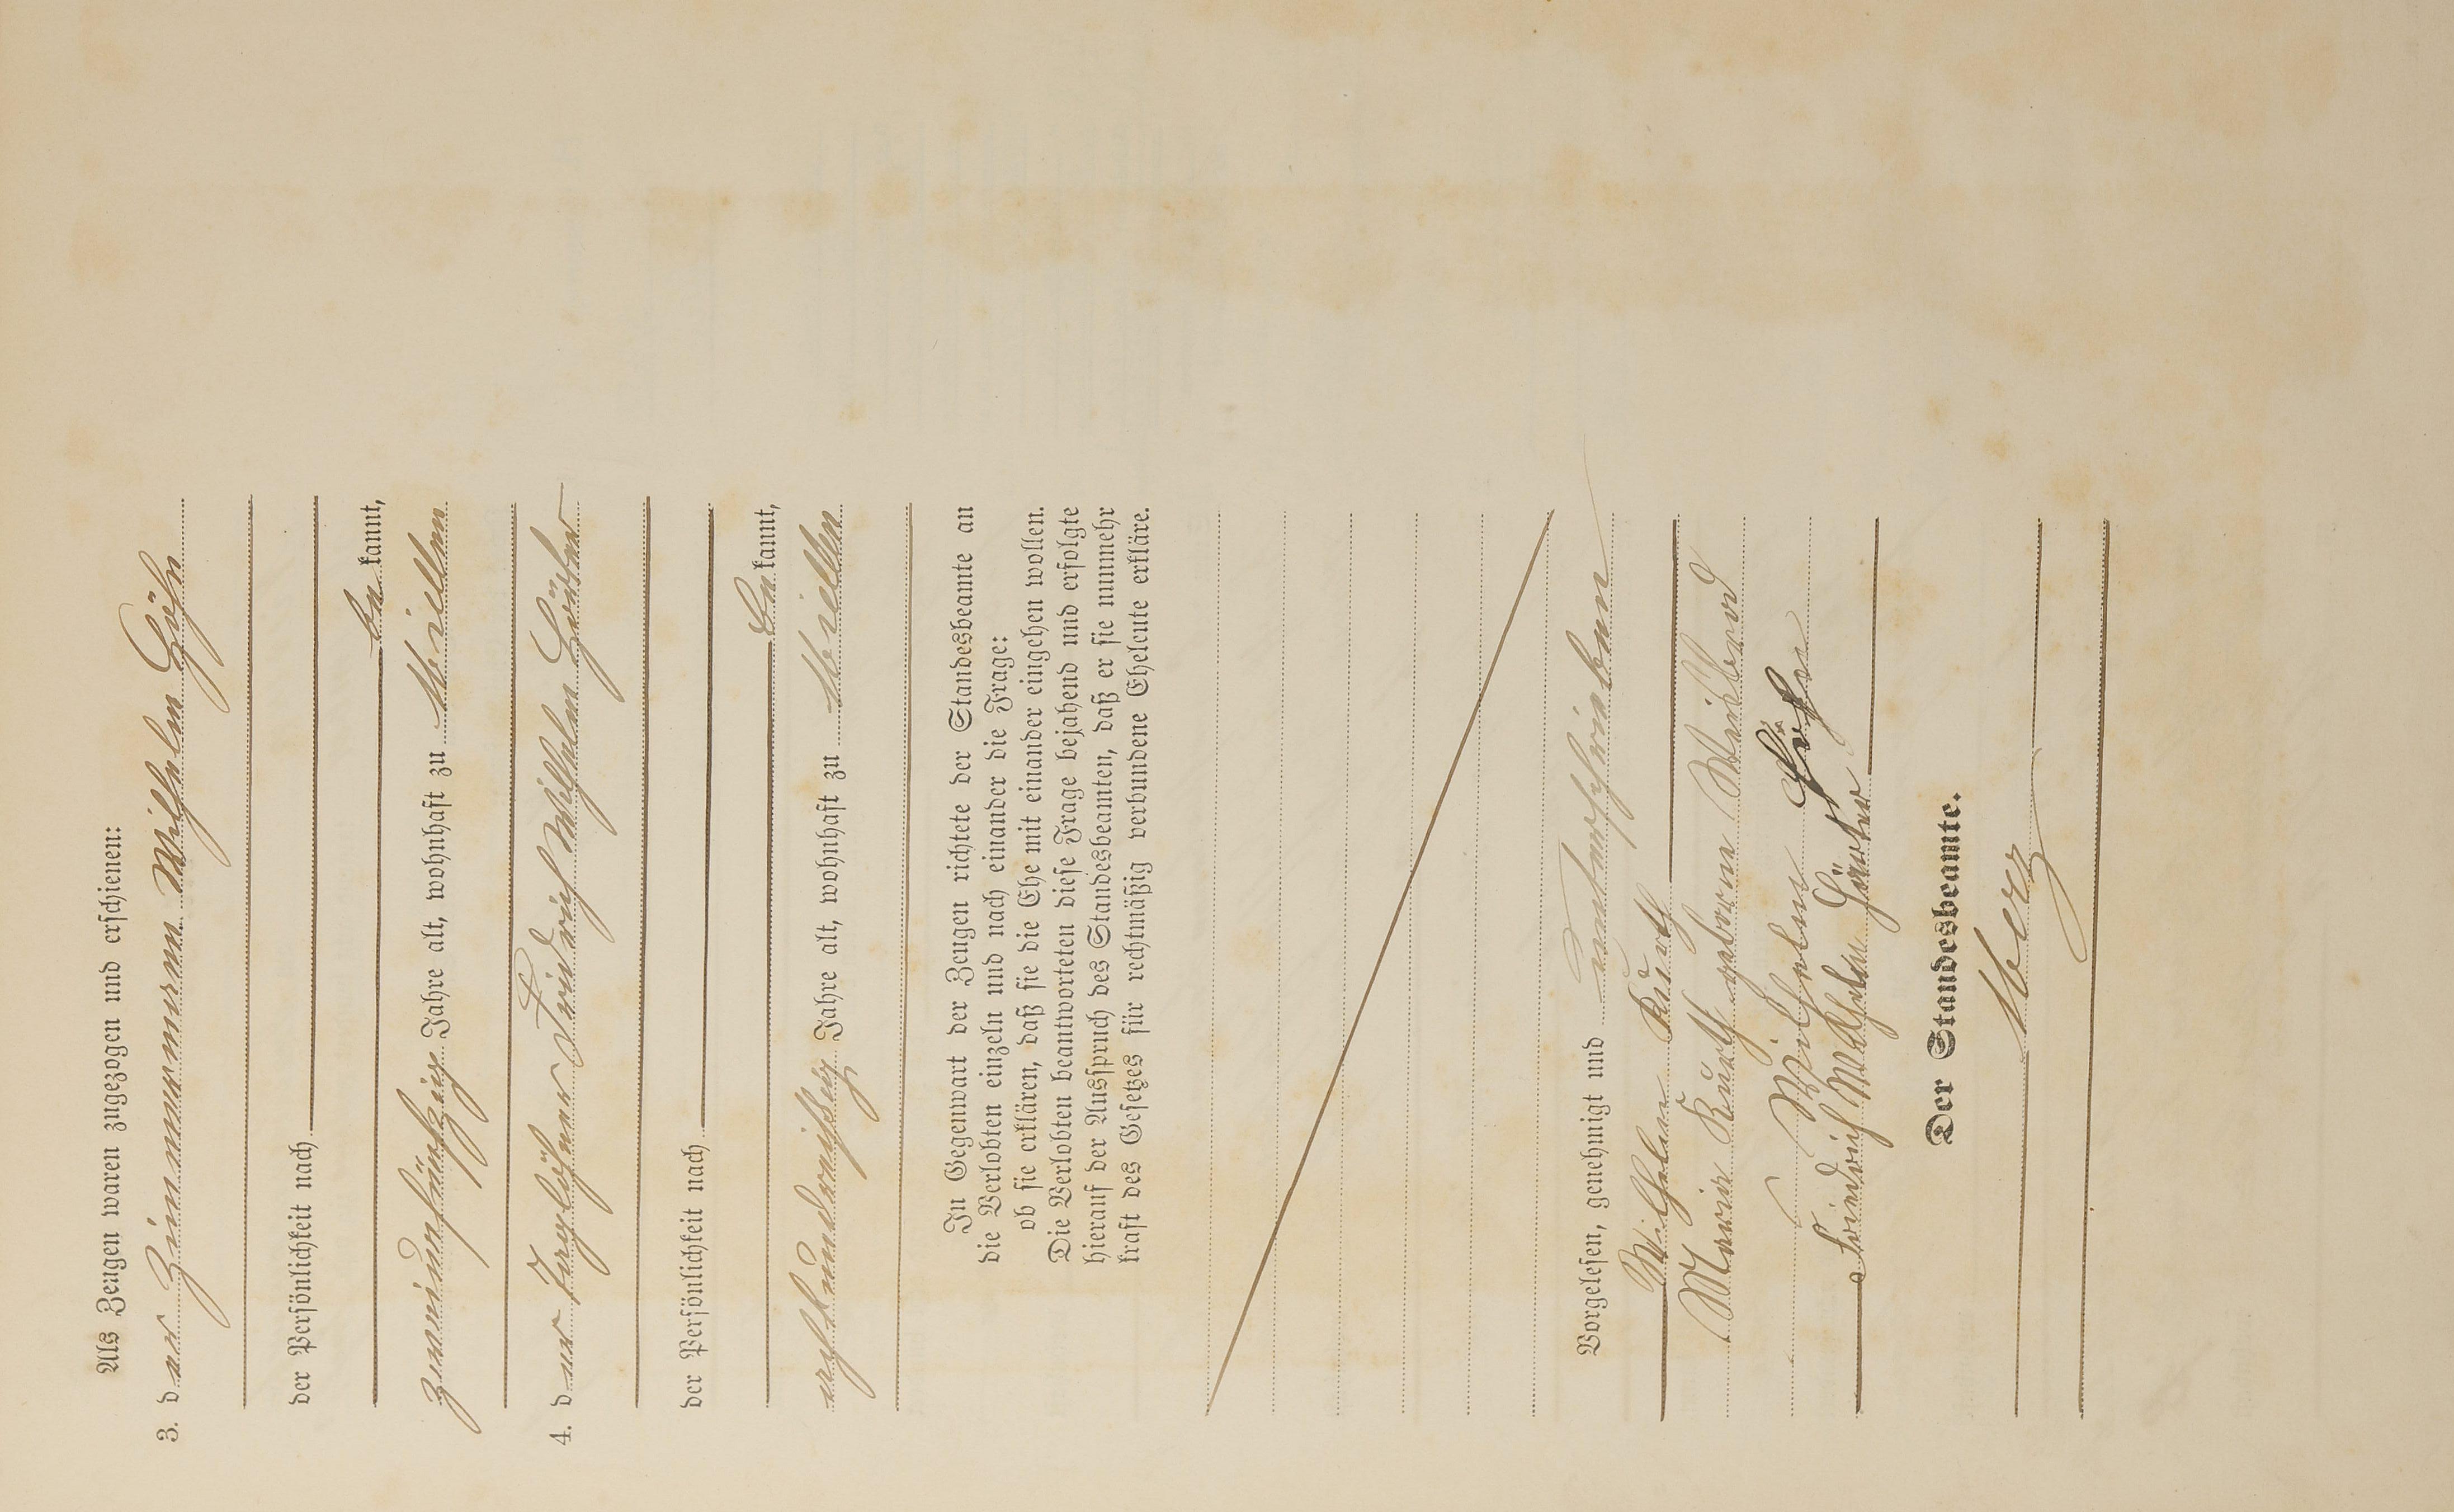 Als Zeugen waren zugezogen und erschienen:
3. der Zimmermann Wilhelm Höhn
der Persönlichkeit nach
be kannt,
zweiundfünfzig Jahre alt, wohnhaft zu
4. der Taglöhner Friedrich Wilhelm Härter
der Persönlichkeit nach
be kannt,
achtunddreißig Jahre alt, wohnhaft zu
In Gegenwart der Zeugen richtete der Standesbeamte an
die Verlobten einzeln und nach einander die Frage:
ob sie erklären, daß sie die Ehe mit einander eingehen wollen.
Die Verlobten beantworteten diese Frage bejahend und erfolgte
hierauf der Ausspruch des Standesbeamten, daß er sie nunmehr
kraft des Gesetzes für rechtmäßig verbundene Eheleute erkläre.
Vorgelesen, genehmigt und unterschrieben
Wilhelm Kurth
Maria Kurth geborne
Wilhelm Höhn
Friedrich Wilhelm Härter
Der Standesbeamte.
Merz